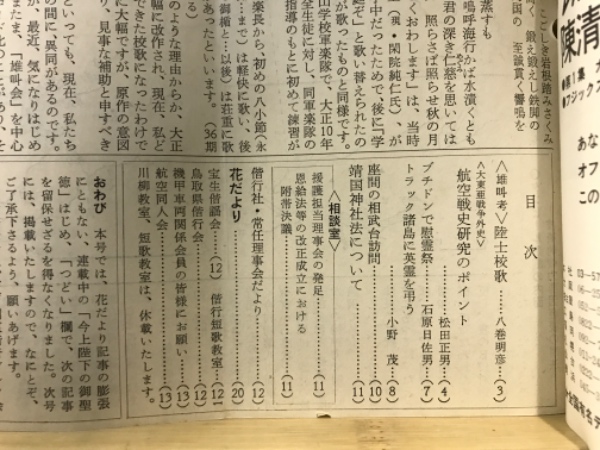 陳清
第1集
フジックス
あな
オフ
この
こごしき岩根踏みさくみ
く 鍛え鍛えし鉄脚の
国の 至誠貫く響鳴を
蒸すも
嗚呼海行かば水漬くとも
照らさば照らせ秋の月
君の深き仁慈を思いては
くおわします」は、当時
(現・閑院純仁氏)、が
中だったためで、後に「学
ぞ」と歌い替えられたの
が歌ったものと同様です。
山学校軍楽隊で、大正10年
全生徒に対し、同軍楽隊の
指導のもとに初めて練習が
あったといいます。(36期
楽長から、初めの八小節(永
…まで)は軽快に歌い、後
御楯と…以後)は荘重に歌
る)
のような理由からか、大正
幅に改作され、現在、私ど
できた校歌になったわけで
に大幅ですが、原作の意図
り、見事な補助と申すべき
といっても、現在、私たち
の間に異同があるのです。
が、最近、気になりはじめ
たまたま、「雄叫会」を中心
目次
〈雄叫考〉陸士校歌……八巻明彦…(3)
〈大東亜戦争外史〉
航空戦史研究のポイント
……松田正男…(4)
ブチドンで慰霊祭……石原日佐男…(7)
トラック諸島に英霊を弔う
……小野 茂…(8)
座間の相武台訪問……(10)
靖国神社法について……(11)
〈相談室〉
援護担当理事会の発足……(11)
恩給法等の改正成立における
附帯決議……(11)
偕行社・常任理事会だより……(12)
花だより……(20)
宝生偕謡会……(12) 偕行短歌教室…(12)
鳥取県偕行会……(12)
機甲車両関係会員の皆様にお願い…(13)
航空同人会……(13)
川柳教室、短歌教室は、休載いたします。
おわび 本号では、花だより記事の膨張
にともない、連載中の「今上陛下の御聖
徳」はじめ、「つどい」欄で、次の記事
を留保せざるを得なくなりました。次号
には、掲載いたしますので、なにとぞ、
ご了承下さるよう、願いあげます。